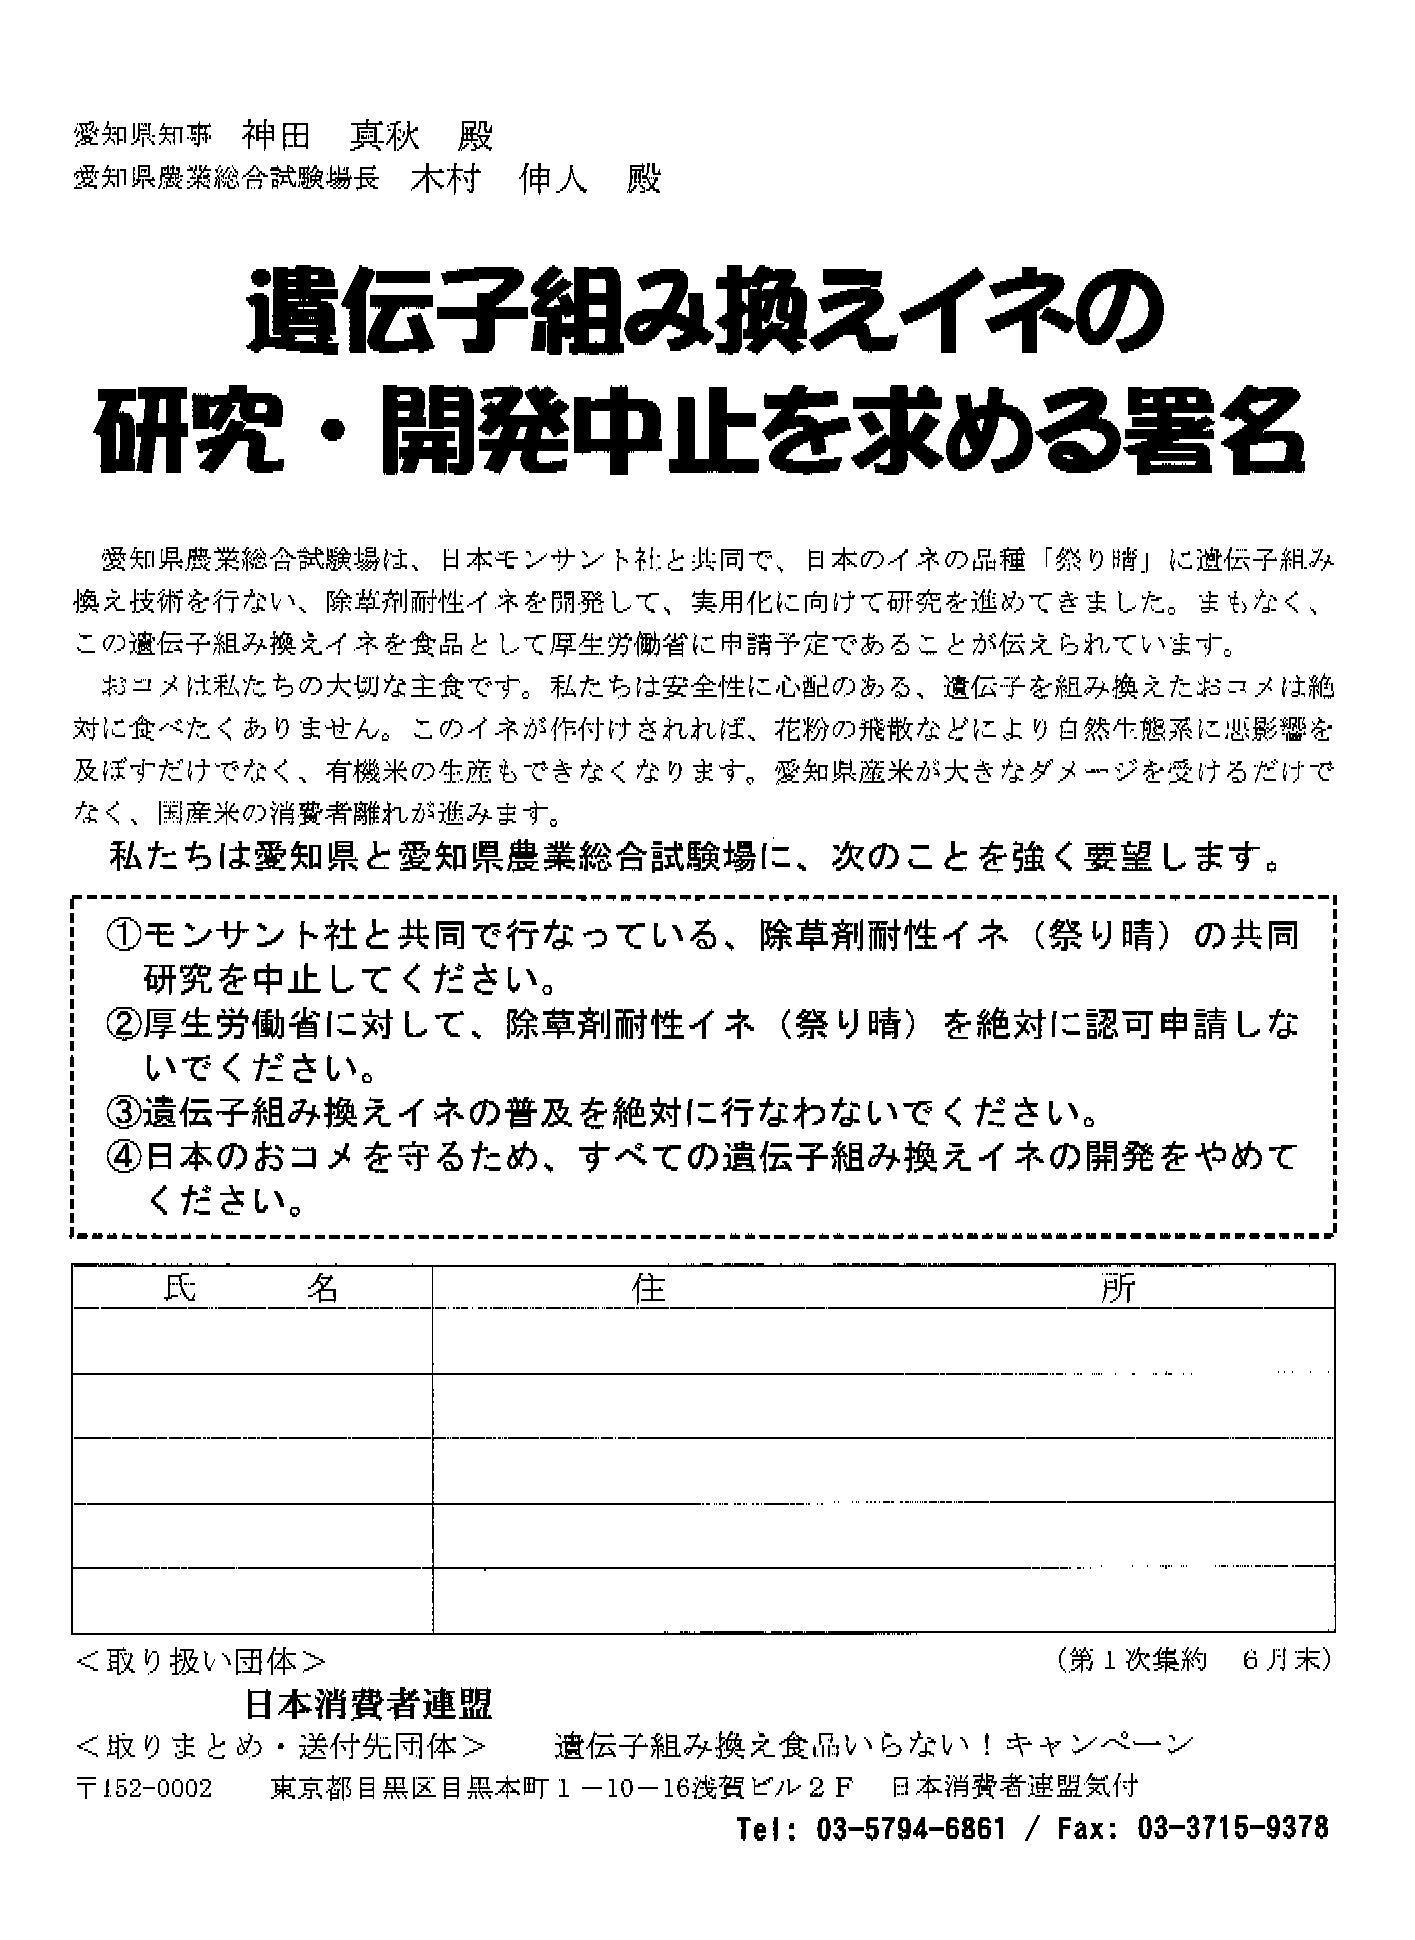 愛知県知事　神田　真秋　殿
愛知県農業総合試験場長　木村　伸人　殿
遺伝子組み換えイネの
研究・開発中止を求める署名
　愛知県農業総合試験場は、日本モンサント社と共同で、日本のイネの品種「祭り晴」に遺伝子組み
換え技術を行ない、除草剤耐性イネを開発して、実用化に向けて研究を進めてきました。まもなく、
この遺伝子組み換えイネを食品として厚生労働省に申請予定であることが伝えられています。
　おコメは私たちの大切な主食です。私たちは安全性に心配のある、遺伝子を組み換えたおコメは絶
対に食べたくありません。このイネが作付けされれば、花粉の飛散などにより自然生態系に悪影響を
及ぼすだけでなく、有機米の生産もできなくなります。愛知県産米が大きなダメージを受けるだけで
なく、国産米の消費者離れが進みます。
私たちは愛知県と愛知県農業総合試験場に、次のことを強く要望します。
①モンサント社と共同で行なっている、除草剤耐性イネ（祭り晴）の共同
研究を中止してください。
②厚生労働省に対して、除草剤耐性イネ（祭り晴）を絶対に認可申請しな
いでください。
③遺伝子組み換えイネの普及を絶対に行なわないでください。
④日本のおコメを守るため、すべての遺伝子組み換えイネの開発をやめて
ください。
氏　名　住　所
＜取り扱い団体＞　（第１次集約　６月末）
日本消費者連盟
＜取りまとめ・送付先団体＞　遺伝子組み換え食品いらない！キャンペーン
〒152-0002　東京都目黒区目黒本町１－10－16浅賀ビル２Ｆ　日本消費者連盟気付
Tel: 03-5794-6861 / Fax: 03-3715-9378